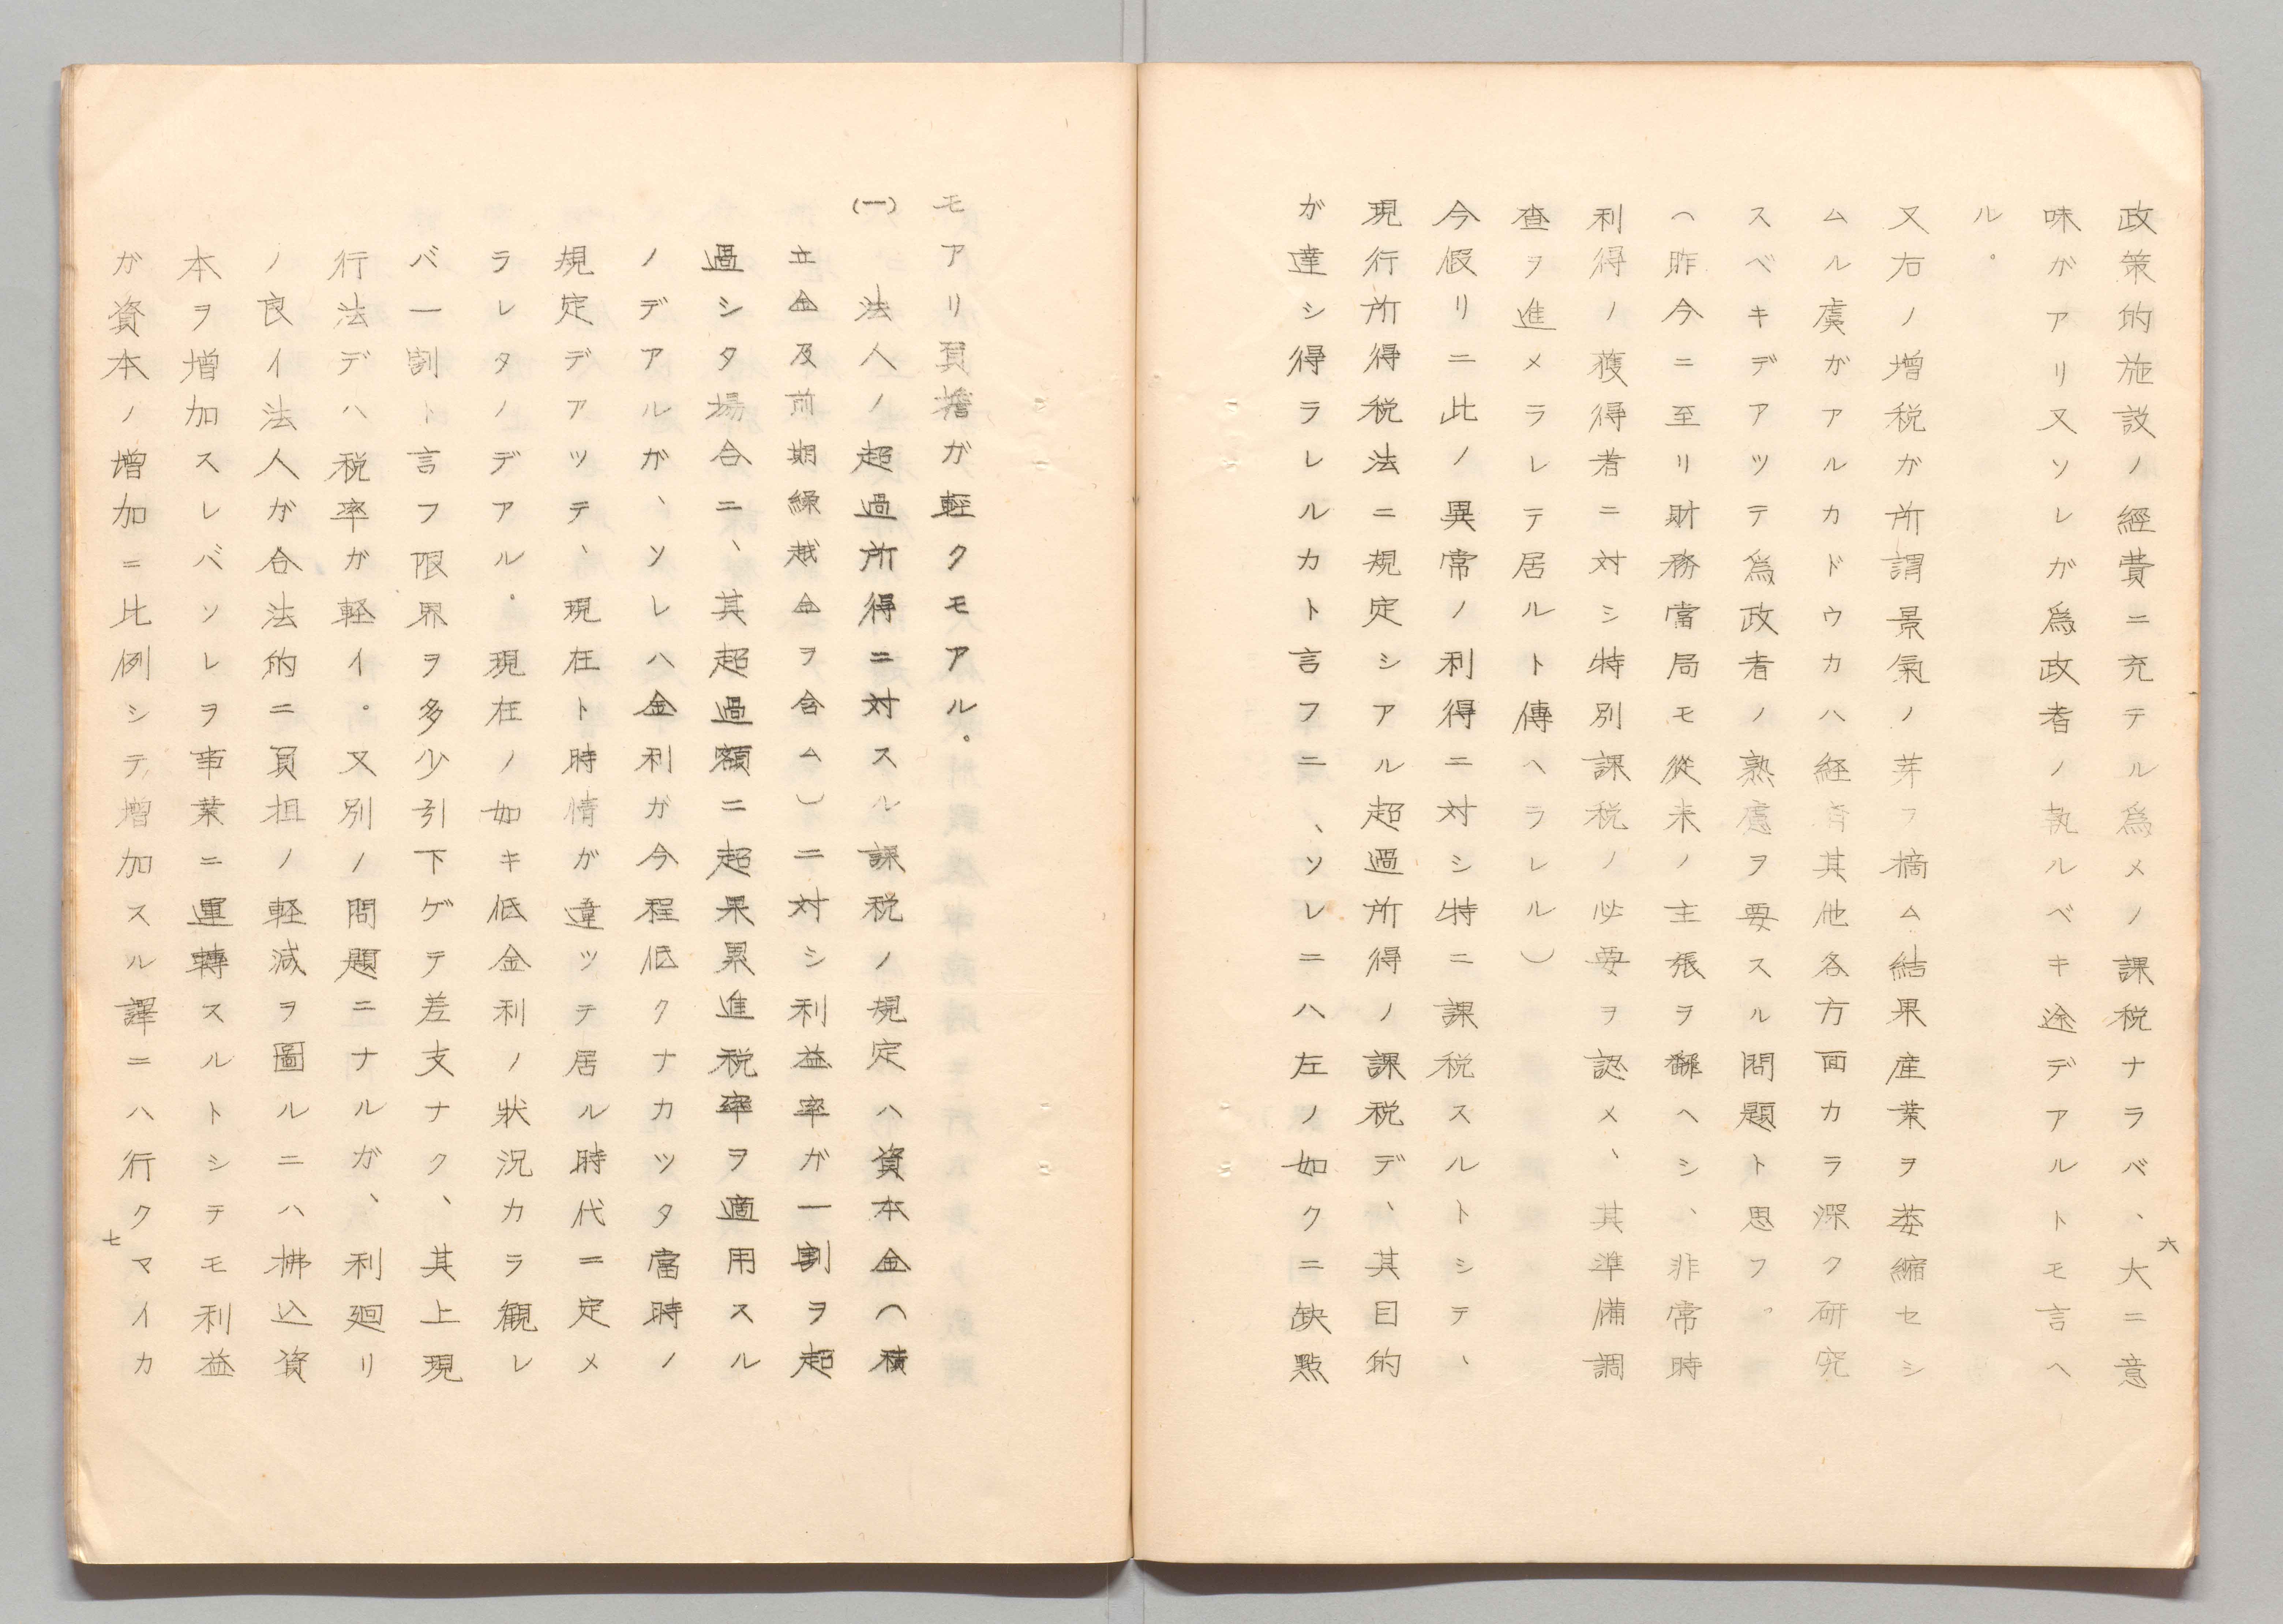 政策的施設ノ經費ニ充テル爲メノ課税ナラバ、大ニ意
味ガアリ又ソレガ爲政者ノ執ルベキ途デアルトモ言ヘ
ル。
又右ノ増税ガ所謂景氣ノ芽ヲ摘ム結果産業ヲ萎縮セシ
ムル虞ガアルカドウカハ経済其他各方面カラ深ク研究
スベキデアツテ爲政者ノ熟慮ヲ要スル問題ト思フ。
(昨今ニ至リ財務當局モ從来ノ主張ヲ飜ヘシ、非常時
利得ノ獲得者ニ対シ特別課税ノ必要ヲ認メ、其準備調
査ヲ進メラレテ居ルト傳ヘラレル)
今假リニ此ノ異常ノ利得ニ対シ特ニ課税スルトシテ、
現行所得税法ニ規定シアル超過所得ノ課税デ、其目的
ガ達シ得ラレルカト言フニ、ソレニハ左ノ如クニ缺點
六
モアリ負擔ガ軽クモアル。
(一) 法人ノ超過所得ニ対スル課税ノ規定ハ資本金(積
立金及前期繰越金ヲ含ム)ニ対シ利益率ガ一割ヲ超
過シタ場合ニ、其超過額ニ超果累進税率ヲ適用スル
ノデアルガ、ソレハ金利ガ今程低クナカツタ當時ノ
規定デアツテ、現在ト時情ガ違ツテ居ル時代ニ定メ
ラレタノデアル。現在ノ如キ低金利ノ狀況カラ観レ
バ一割ト言フ限界ヲ多少引下ゲテ差支ナク、其上現
行法デハ税率ガ軽イ。又別ノ問題ニナルガ、利廻リ
ノ良イ法人ガ合法的ニ負担ノ軽減ヲ圖ルニハ拂込資
本ヲ増加スレバソレヲ事業ニ運轉スルトシテモ利益
ガ資本ノ増加ニ比例シテ増加スル譯ニハ行クマイカ
七